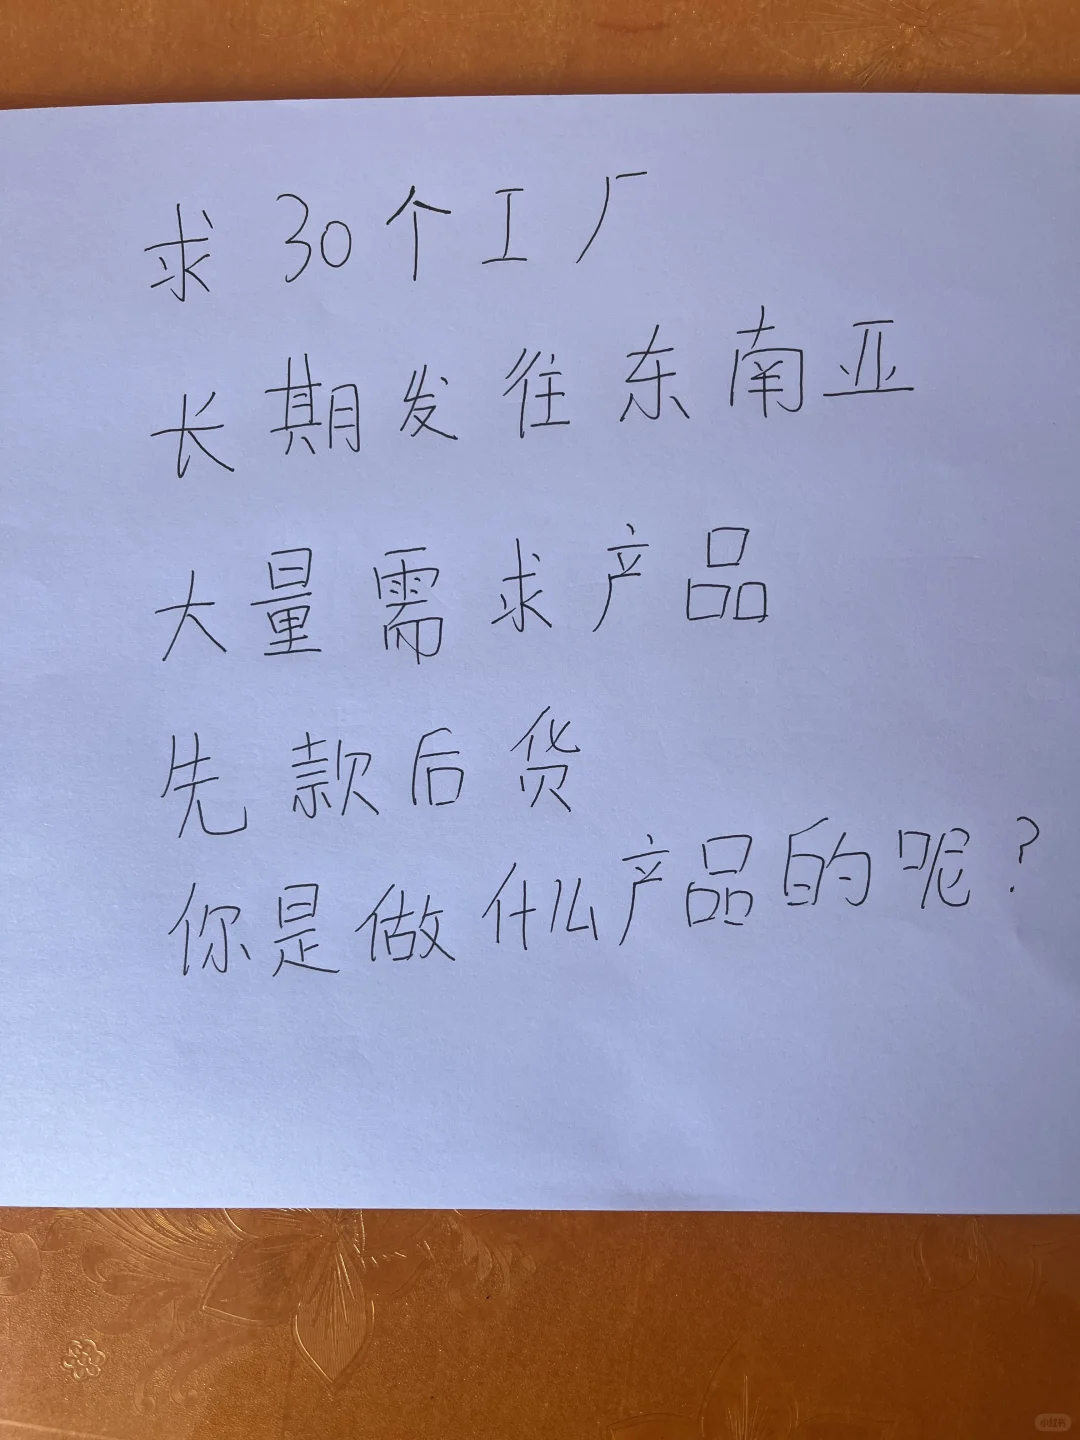 求30个工厂
长期发往东南亚
大量需求产品
先款后货
你是做什么产品的呢?
小红书